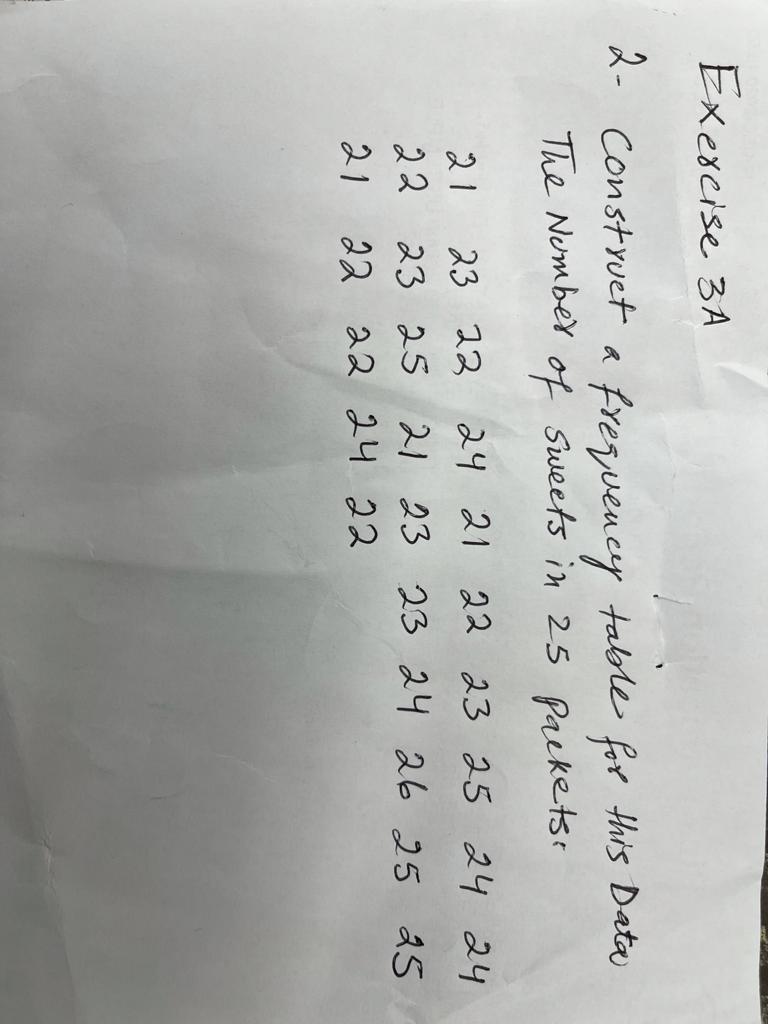 Exercise 3A
2- Construct a frequency table for this Data
The Number of sweets in 25 packets:
21 23 22 24 21 22 23 25 24 24
22 23 25 21 23 23 24 26 25 25
21 22 22 24 22